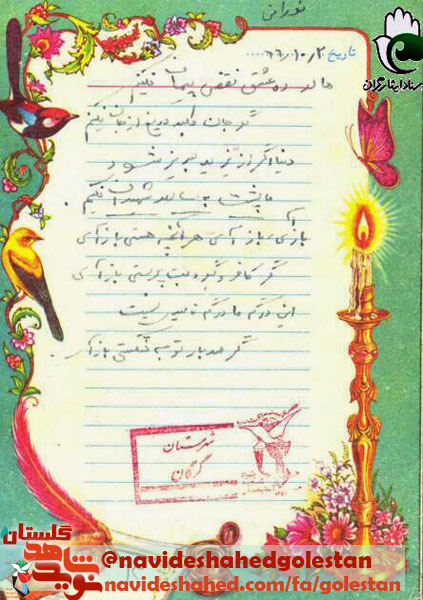 تاریخ ۶۶/۱۰/۲۰
ما در ره عشق نقض پیمان نکنیم
گر جان طلبد دریغ از جان نکنیم
دنیا اگر از یزید لبریز شود
ما پشت به سالار شهیدان نکنیم
بازآی بازآی هر آنچه هستی بازآی
گر کافر و گبر و بت پرستی بازآی
این درگه ما درگه نومیدی نیست
گر صد بار توبه شکستی بازآی
شهرستان
گرگان
گلستان
نوید شاهد
@navideshahedgolestan
navideshahed.com/fa/golestan